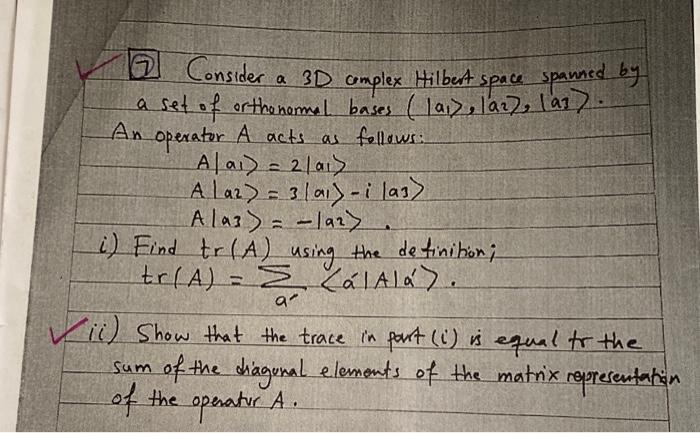 ✓ 7 Consider a 3D complex Hilbert space spanned by
a set of orthonormal bases (|a1>, |a2>, |a3>.
An operator A acts as follows:
A|a1> = 2|a1>
A|a2> = 3|a1> - i |a3>
A|a3> = -|a2> .
i) Find tr(A) using the definition;
tr(A) = Σ <a'|A|a'>.
a'
✓ ii) Show that the trace in part (i) is equal to the
sum of the diagonal elements of the matrix representation
of the operator A.